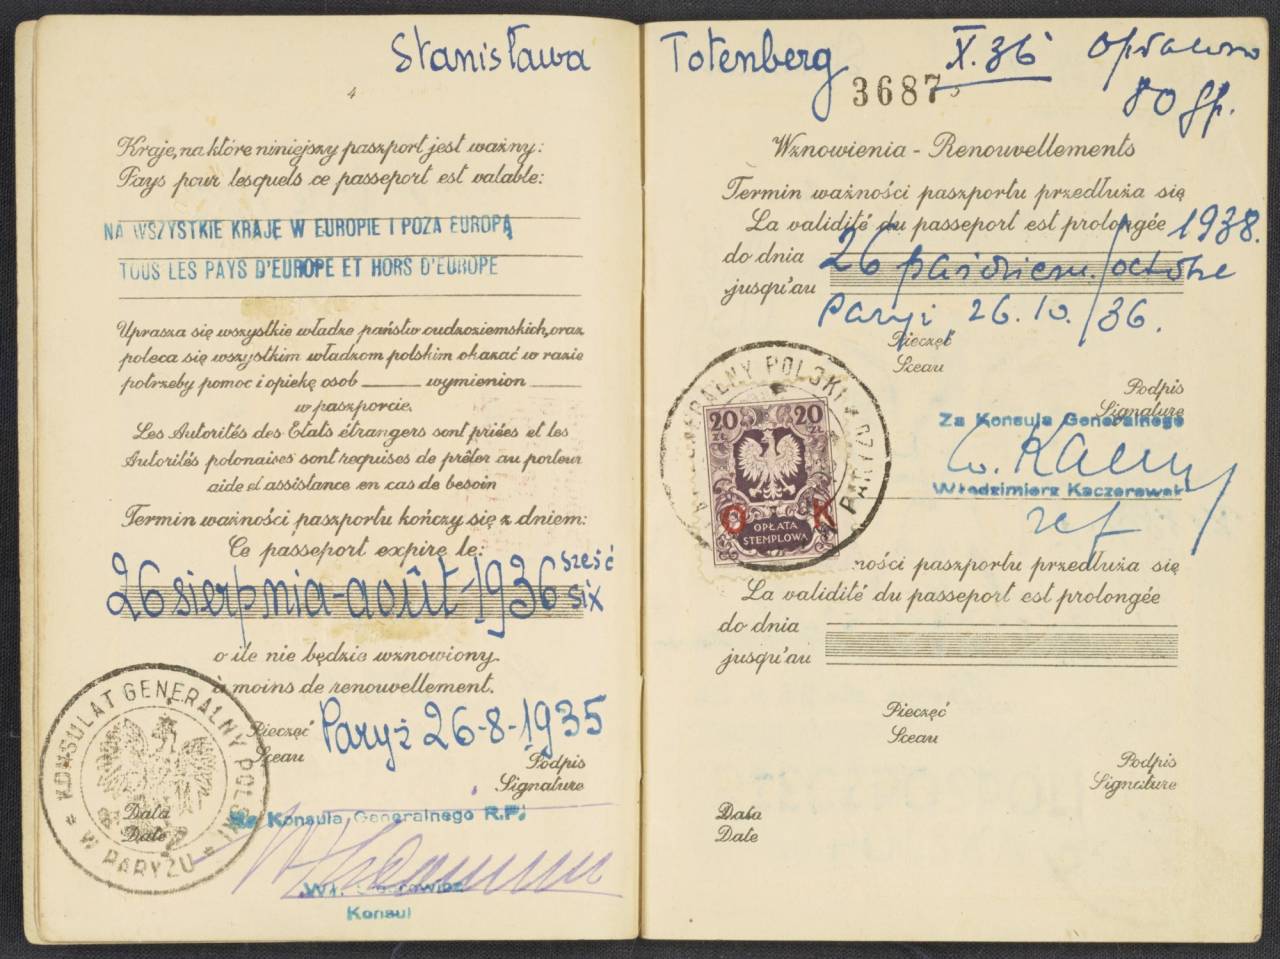 Stanisława
4
Kraje, na które niniejszy paszport jest ważny:
Pays pour lesquels ce passeport est valable:
NA WSZYSTKIE KRAJE W EUROPIE I POZA EUROPĄ
TOUS LES PAYS D'EUROPE ET HORS D'EUROPE
Uprasza się wszystkie władze państw cudzoziemskich, oraz
poleca się wszystkim władzom polskim okazać w razie
potrzeby pomoc i opiekę osob wymienion
w paszporcie.
Les Autorités des Etats étrangers sont priées et les
Autorités polonaises sont requises de prêter au porteur
aide et assistance en cas de besoin
Termin ważności paszportu kończy się z dniem:
Ce passeport expire le:
26 sierpnia-août-1936 sześć
six
o ile nie będzie wznowiony.
à moins de renouvellement.
KONSULAT GENERALNY POLSKI
* W PARYŻU *
Pieczęć
Sceau
Paryż 26-8-1935
Podpis
Signature
Data
Date
Za Konsula Generalnego R.P.
Konsul
Totenberg X.36 Oprawno
3687
80 gr.
Wznowienia - Renouvellements
Termin ważności paszportu przedłuża się
La validité du passeport est prolongée 1938.
do dnia 26 październ./octobre
jusqu'au
Paryż 26.10./36.
Pieczęć
Sceau
Podpis
Signature
GENERALNY POLSKI W PARYŻU
20 ZŁ 20 ZŁ
O K
OPŁATA
STEMPLOWA
Za Konsula Generalnego
Włodzimierz Kaczorowski
ref
ności paszportu przedłuża się
La validité du passeport est prolongée
do dnia
jusqu'au
Pieczęć
Sceau
Podpis
Signature
Data
Date